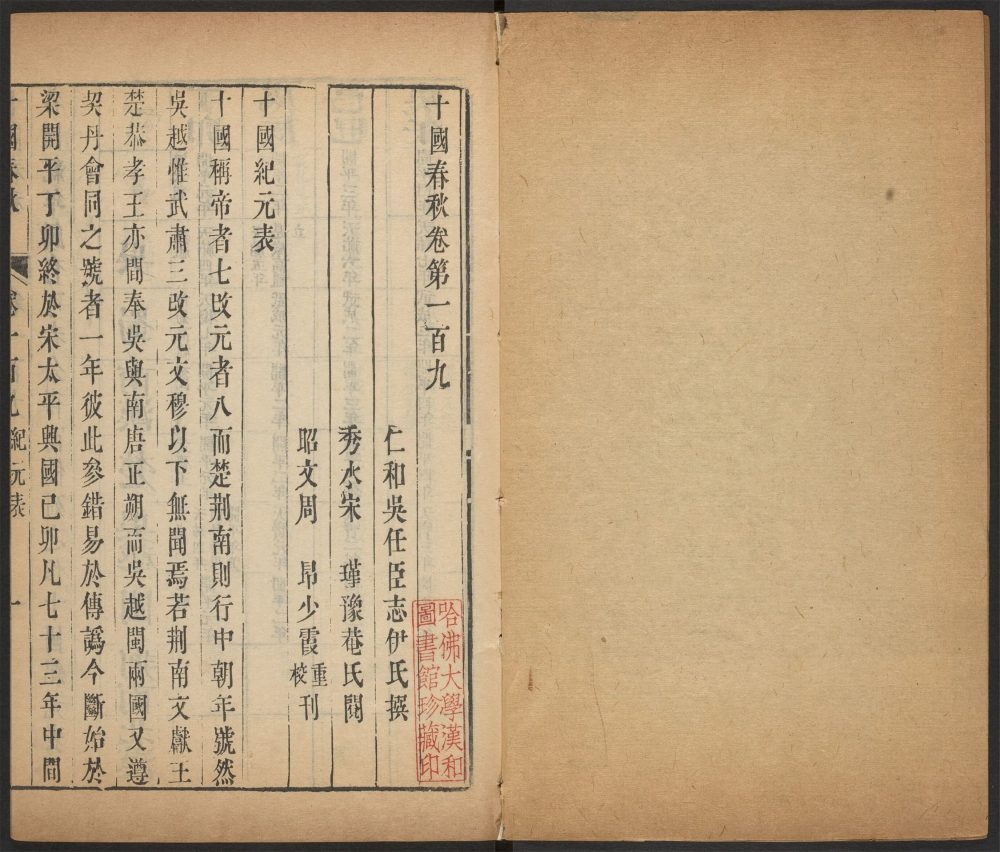 十國春秋卷第一百九
仁和吳任臣志伊氏撰
秀水宋　瑾豫菴氏閱
昭文周　昂少霞重校刊
十國紀元表
十國稱帝者七改元者八而楚荆南則行中朝年號然
吳越惟武肅三改元文穆以下無聞焉若荆南文獻王
楚恭孝王亦間奉吳與南唐正朔而吳越閩兩國又遵
契丹會同之號者一年彼此參錯易於傳譌今斷始於
梁開平丁卯終於宋太平興國己卯凡七十三年中間
十國春秋　卷一百九紀元表　一
哈佛大學漢和
圖書館珍藏印